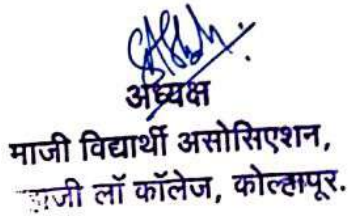 अध्यक्ष
माजी विद्यार्थी असोसिएशन,
लॉ कॉलेज, कोल्हापूर.